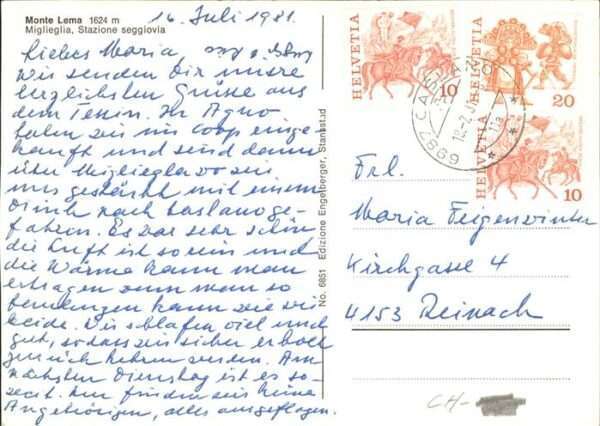 Monte Lema 1624 m
Miglieglia, Stazione seggiovia
16. Juli 1981.
Liebes Maria
Wir senden Dir unsre
herzlichsten Grüsse aus
dem Tessin. In Agno
haben wir im Coop einge
kauft und sind dann
über Miglieglia wo wir
uns gestärkt mit einem
Drink nach Caslano ge-
fahren. Es war sehr schön
die Luft ist so rein und
die Wärme kann man
ertragen wenn man so
bewegen kann wie wir
beide. Wir schlafen viel und
gut, sodass wir sicher erholt
zurück kehren werden. Am
nächsten Dienstag ist es so-
weit. Nur finden wir keine
Angehörigen, alles ausgeflogen.
No. 6851 Edizione Engelberger, Stansstad
HELVETIA 10
HELVETIA 20
HELVETIA 10
6987 CASLANO
Frl.
Maria Feigenwinter
Kirchgasse 4
4153 Reinach
CH-